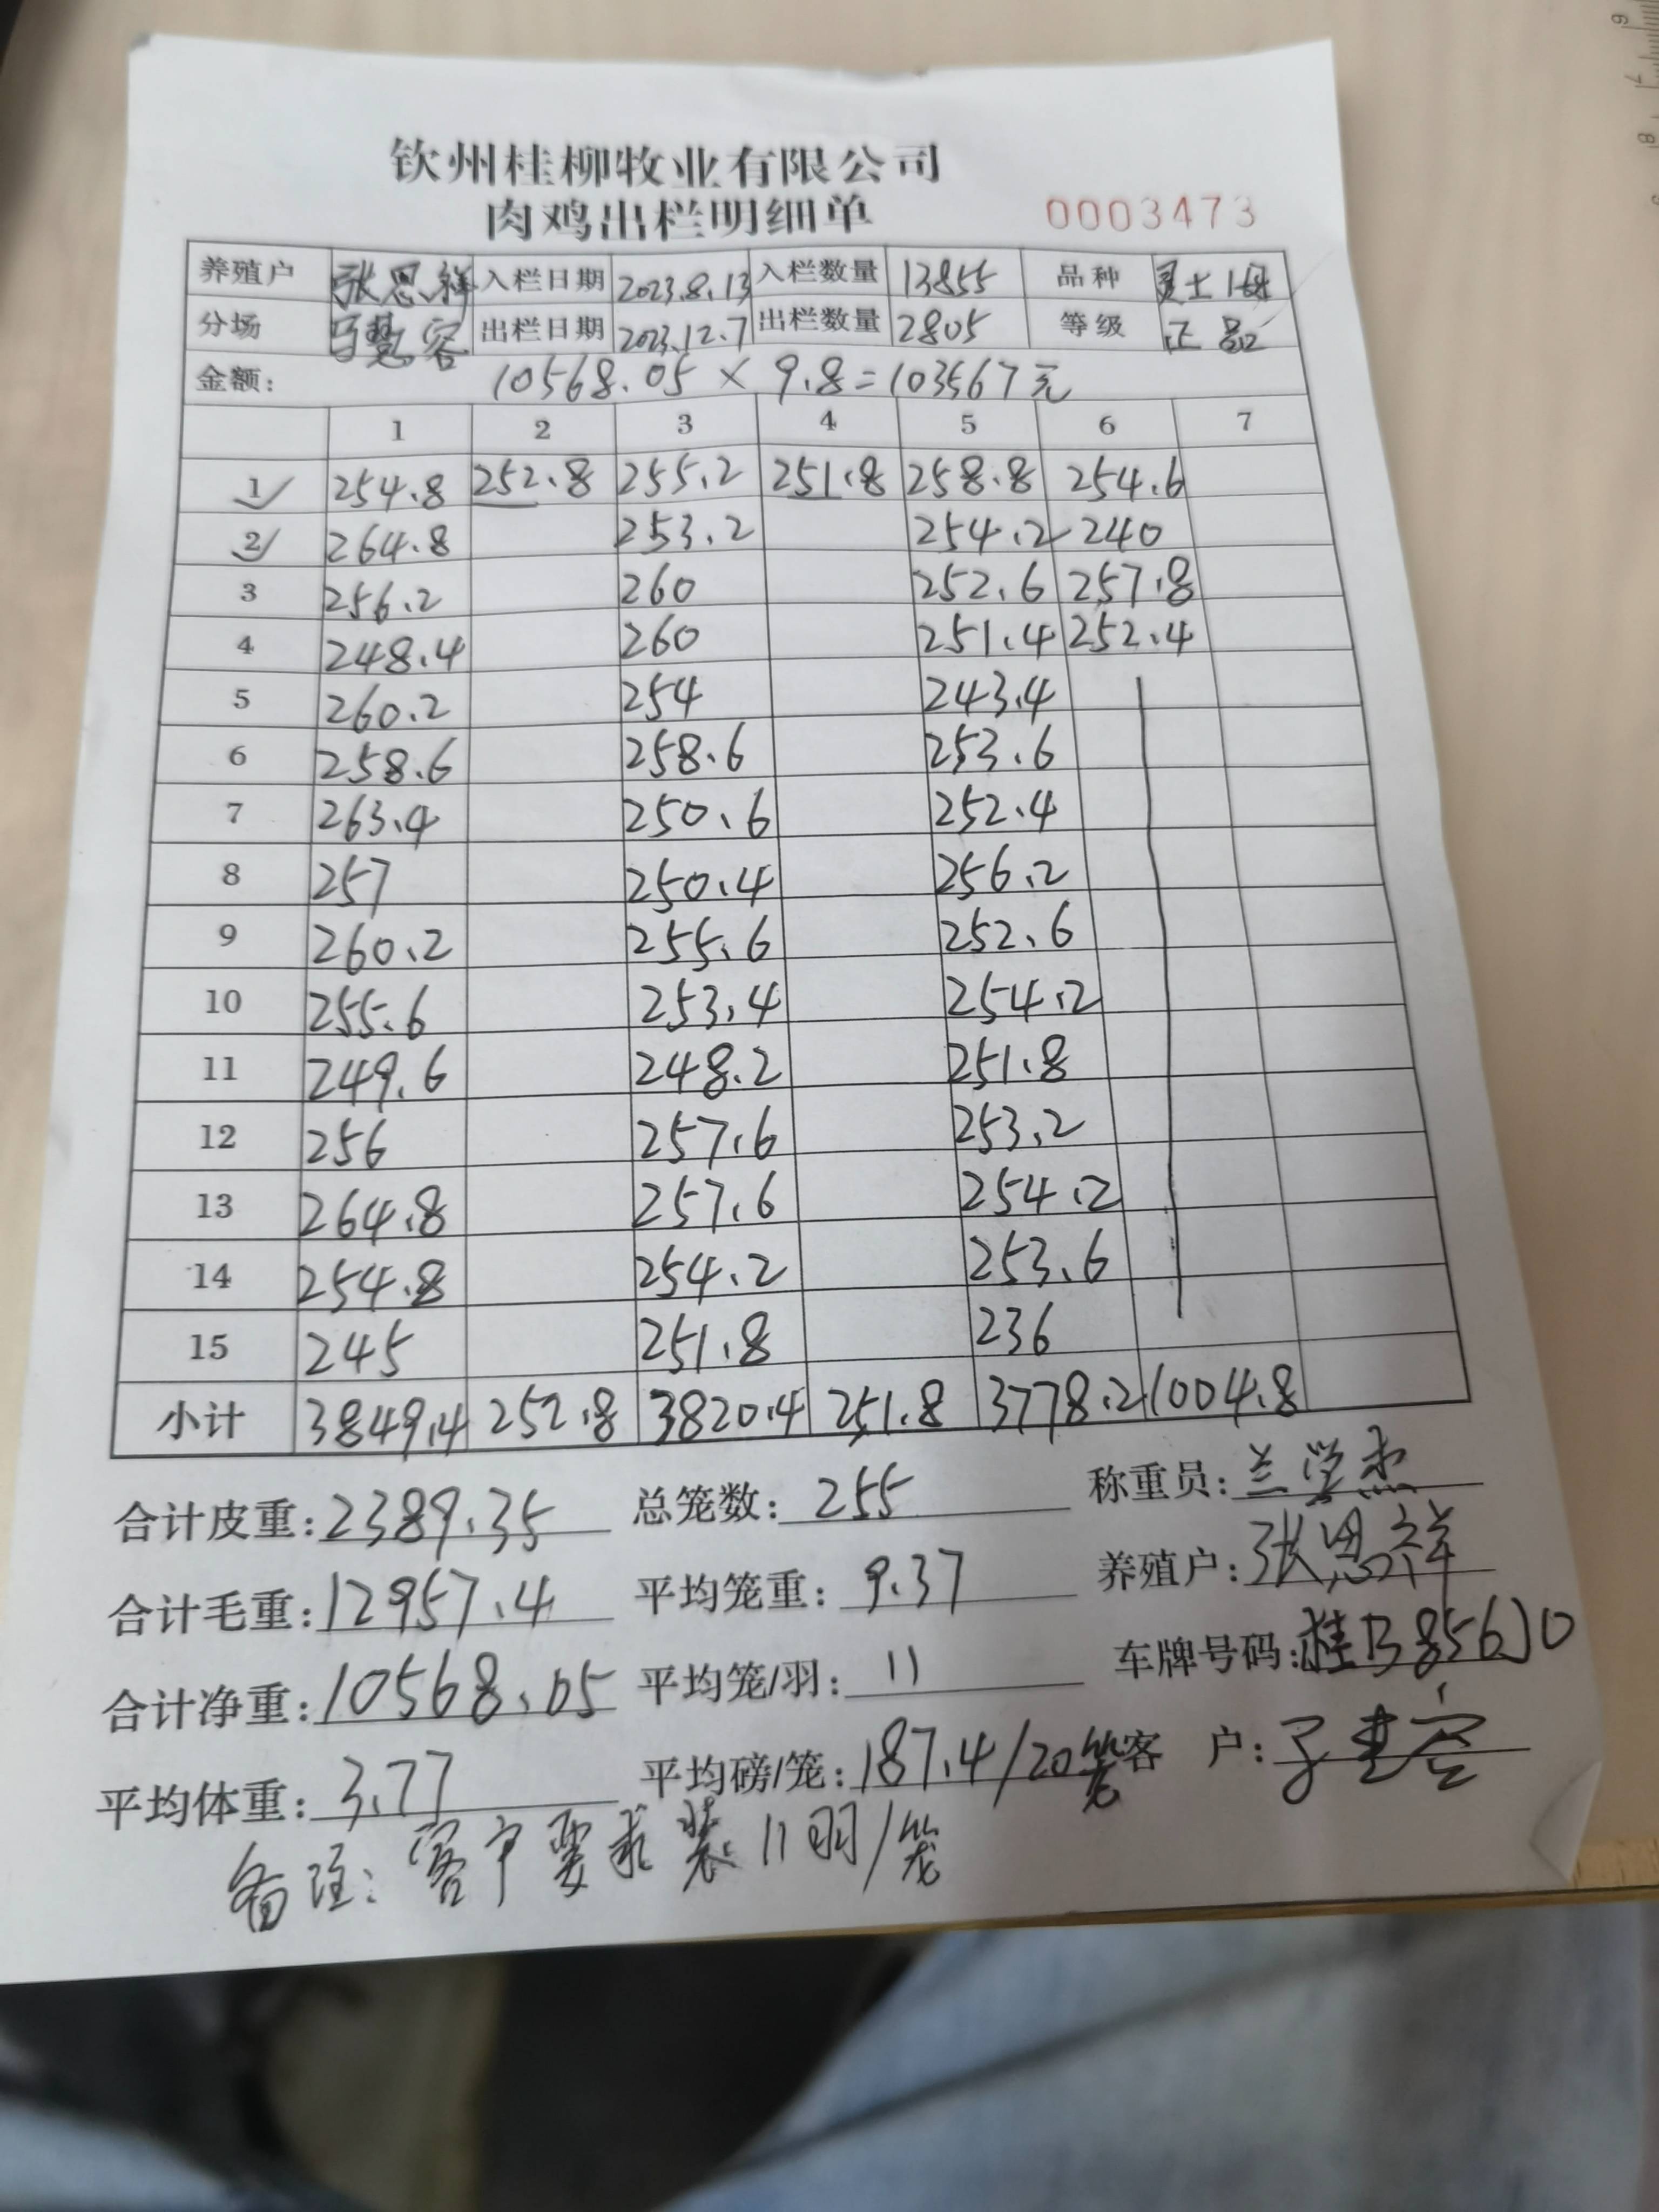 钦州桂柳牧业有限公司
肉鸡出栏明细单 0003473
养殖户 张思祥 入栏日期 2023.8.13 入栏数量 13855 品种
分场 出栏日期 2023.12.7 出栏数量 2805 等级 正品
金额: 10568.05 × 9.8=103567元
1 2 3 4 5 6 7
1 254.8 252.8 255.2 251.8 258.8 254.6
2 264.8 253.2 254.2 240
3 256.2 260 252.6 257.8
4 248.4 260 251.4 252.4
5 260.2 254 243.4
6 258.6 258.6 253.6
7 263.4 250.6 252.4
8 257 250.4 256.2
9 260.2 255.6 252.6
10 255.6 253.4 254.2
11 249.6 248.2 251.8
12 256 257.6 253.2
13 264.8 257.6 254.2
14 254.8 254.2 253.6
15 245 251.8 236
小计 3849.4 252.8 3820.4 251.8 3778.2 1004.8
合计皮重: 2389.35 总笼数: 255 称重员: 兰学杰
合计毛重: 12957.4 平均笼重: 9.37 养殖户: 张思祥
合计净重: 10568.05 平均笼/羽: 11 车牌号码:
平均体重: 3.77 平均磅/笼: 187.4/20笼 客 户:
备注: 客户要求装11羽/笼
6
7
8